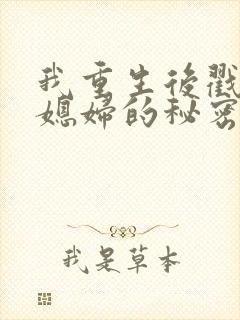 我重生後戳
媳婦的秘密
我是草本